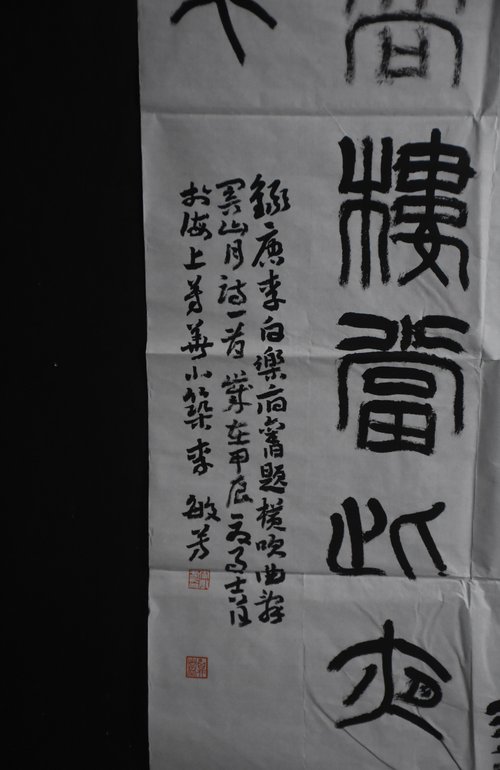 高樓當此夜
錄唐李白樂府舊題橫吹曲辭
關山月詩一首歲在甲辰
於海上芳華小築李敏芳